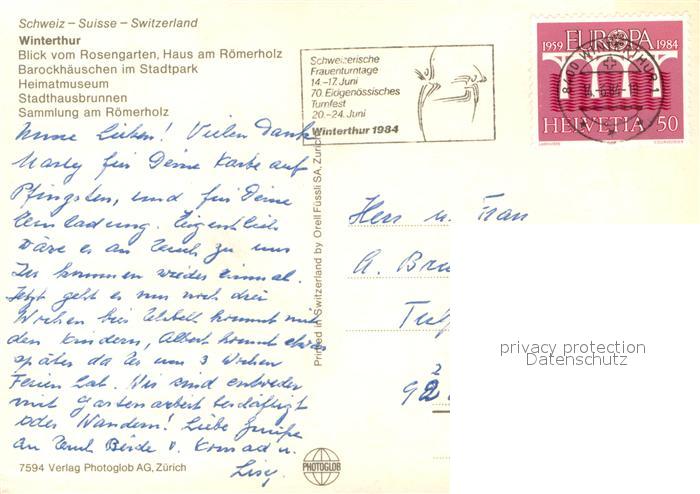 Schweiz – Suisse – Switzerland
Winterthur
Blick vom Rosengarten, Haus am Römerholz
Barockhäuschen im Stadtpark
Heimatmuseum
Stadthausbrunnen
Sammlung am Römerholz
Meine Lieben! Vielen Dank
Marly für Deine Karte auf
Pfingsten, und für Deine
Einladung. Eigentlich
wäre es an Euch zu uns
zu kommen wieder einmal.
Jetzt geht es nur noch drei
Wochen bis kommt mit
den Kindern, Albert kommt etwas
später da Er nur 3 Wochen
Ferien hat. Wir sind entweder
mit Gartenarbeit beschäftigt
oder Wandern! Liebe Grüsse
an Euch Beide v. Konrad u.
Lisy.
7594 Verlag Photoglob AG, Zürich
Printed in Switzerland by Orell Füssli SA, Zürich
PHOTOGLOB
Schweizerische
Frauenturntage
14.–17. Juni
70. Eidgenössisches
Turnfest
20.–24. Juni
Winterthur 1984
1959 EUROPA 1984
8400 WINTERTHUR 1
HELVETIA 50
Herr u. Frau
A. Bru
92
privacy protection
Datenschutz